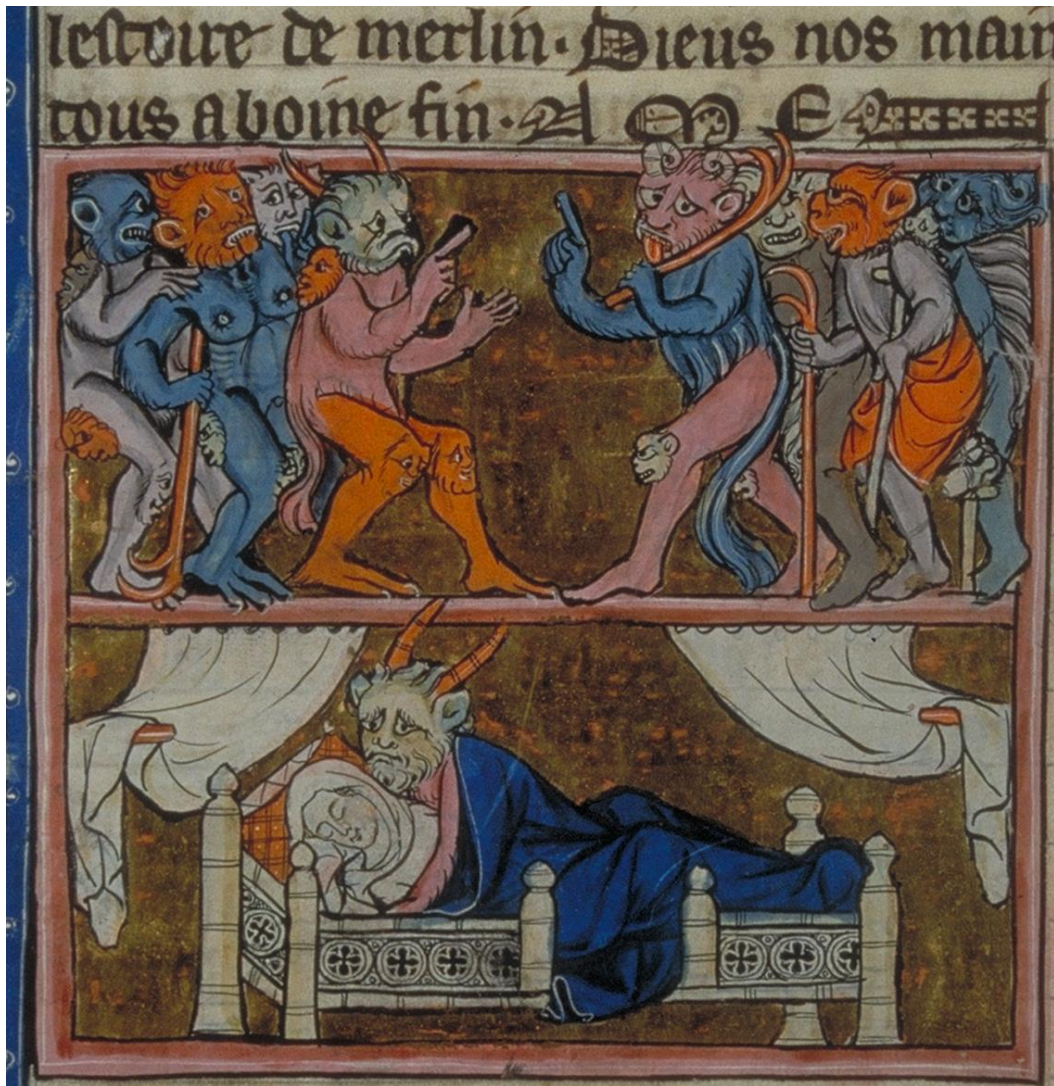 lestoire de merlin. Dieus nos main
tous a boine fin. A M E N